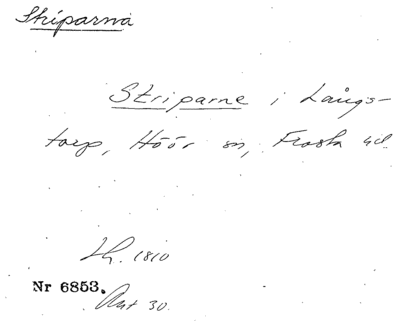 Striparna
Striparne i Långs-
torp, Höör sn, Frosta hd
Lh. 1810
Nr 6853.
Akt 30.